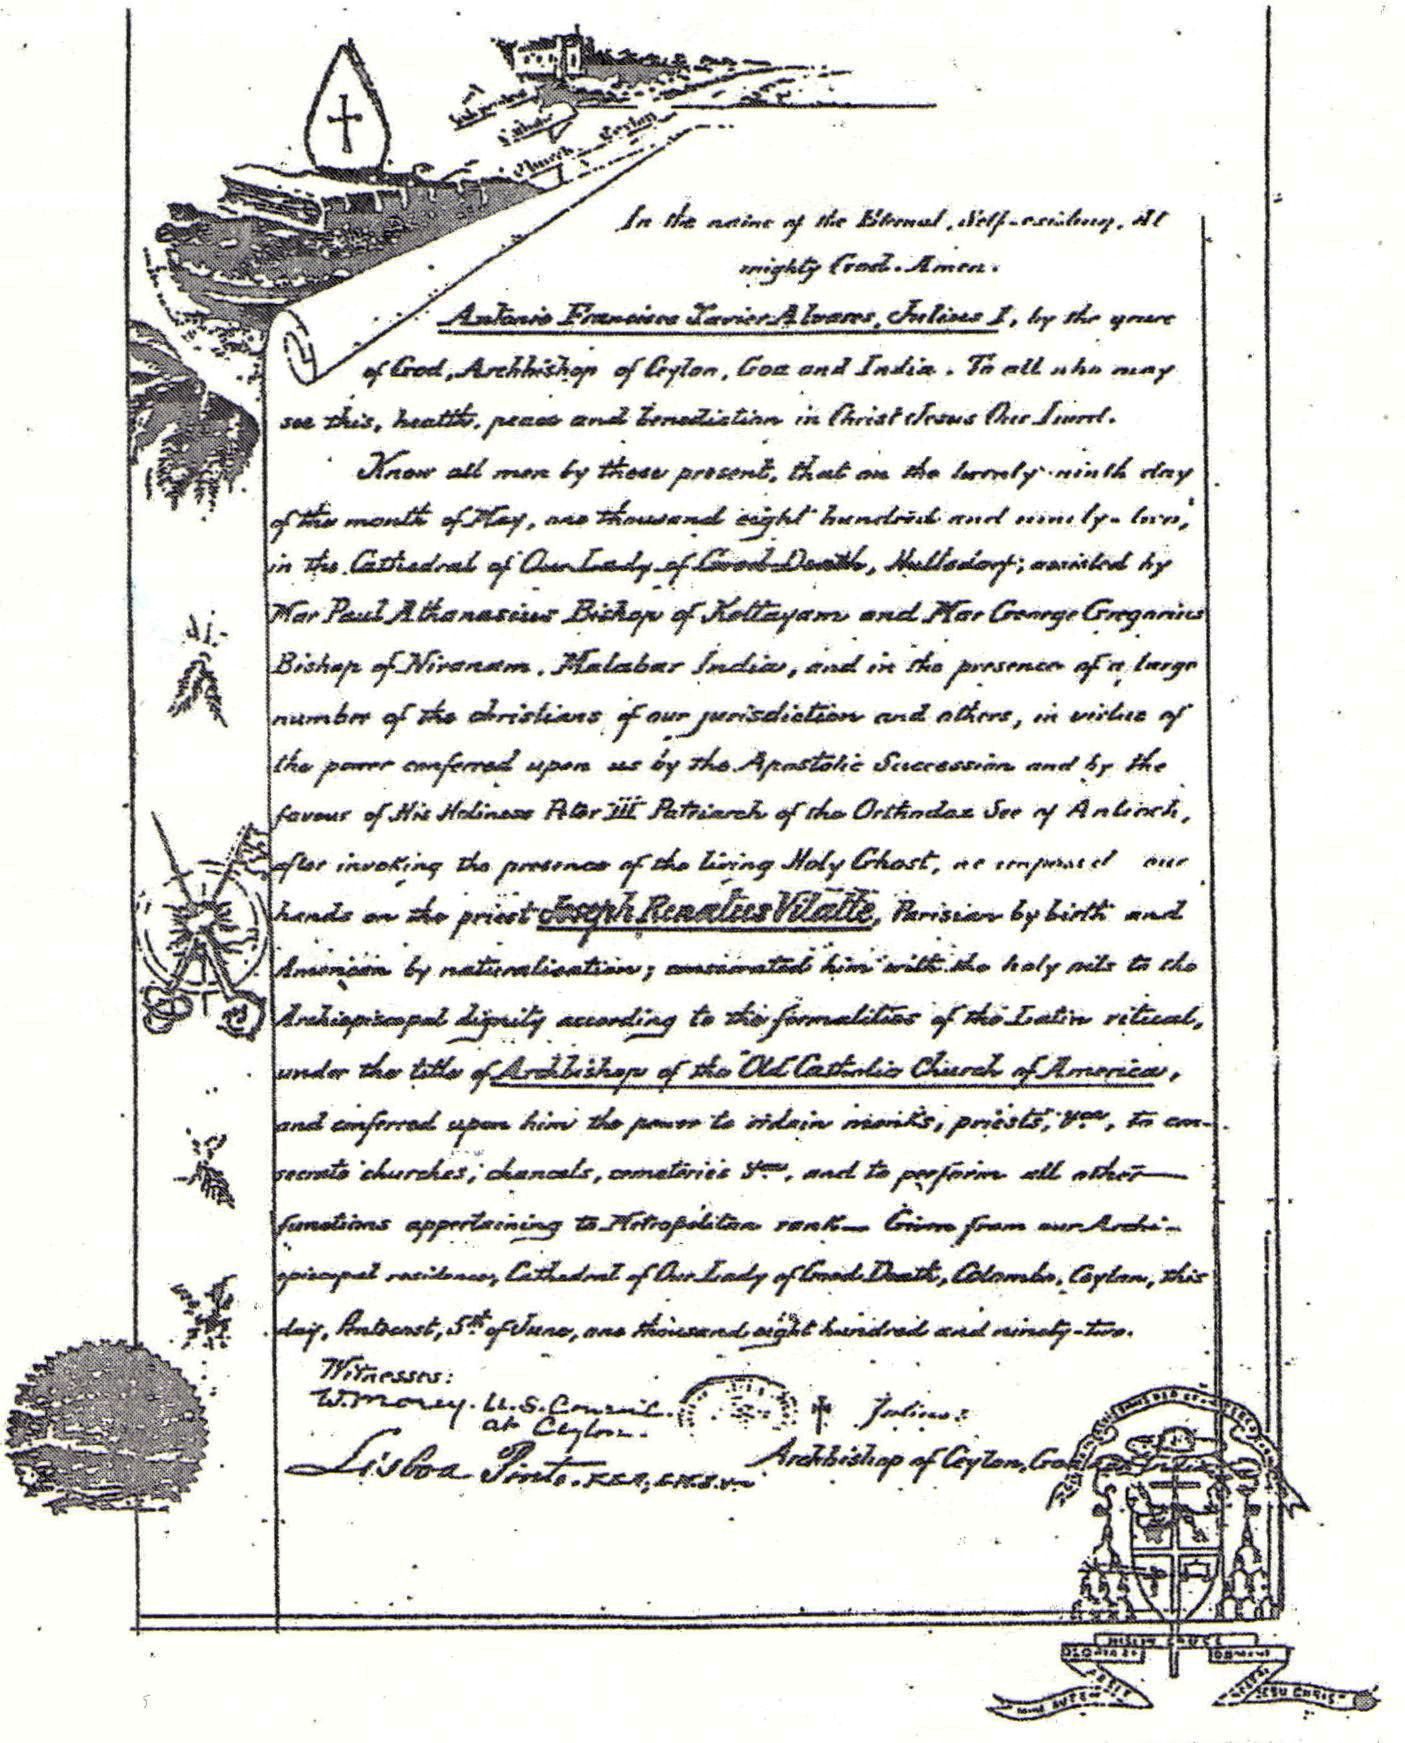 Independent
Catholic
Church Ceylon
In the name of the Eternal, Self-existing, Al
mighty God. Amen.
Antonio Francisco Xavier Alvares, Julius I, by the grace
of God, Archbishop of Ceylon, Goa and India. To all who may
see this, health, peace and benediction in Christ Jesus Our Lord.
Know all men by these present, that on the twenty-ninth day
of the month of May, one thousand eight hundred and ninety-two,
in the Cathedral of Our Lady of Good Death, Hultsdorf; assisted by
Mar Paul Athanasius Bishop of Kottayam and Mar George Gregorius
Bishop of Niranam. Malabar India, and in the presence of a large
number of the christians of our jurisdiction and others, in virtue of
the power conferred upon us by the Apostolic Succession and by the
favour of His Holiness Peter III Patriarch of the Orthodox See of Antioch,
after invoking the presence of the living Holy Ghost, we imposed our
hands on the priest Joseph Renatus Vilatte, Parisian by birth and
American by naturalisation; consecrated him with the holy oils to the
Archiepiscopal dignity according to the formalities of the Latin ritual,
under the title of Archbishop of the Old Catholic Church of America,
and conferred upon him the power to ordain monks, priests, &ca, to con-
secrate churches, chancels, cemeteries &ca, and to perform all other
functions appertaining to Metropolitan rank— Given from our Archi-
episcopal residence, Cathedral of Our Lady of Good Death, Colombo, Ceylon, this
day, Pentecost, 5th of June, one thousand eight hundred and ninety-two.
Witnesses:
W. Morey. U.S. Consul
at Ceylon.
Julius:
Lisboa Pinto.
Archbishop of Ceylon, Goa and India